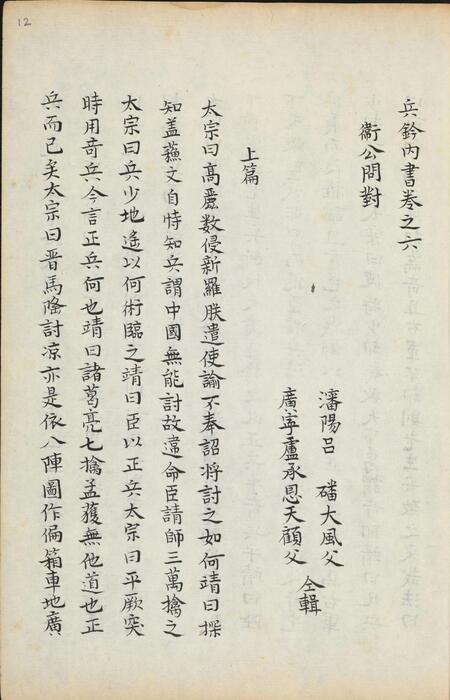 12
兵鈐內書卷之六
衞公問對
瀋陽呂 磻大風父
廣寧盧承恩天顧父
仝輯
上篇
太宗曰高麗數侵新羅朕遣使諭不奉詔將討之如何靖曰探
知盖蘓文自恃知兵謂中國無能討故違命臣請師三萬擒之
太宗曰兵少地遙以何術臨之靖曰臣以正兵太宗曰平厥突
時用竒兵今言正兵何也靖曰諸葛亮七擒孟獲無他道也正
兵而已矣太宗曰晋馬隆討凉亦是依八陣圖作偏箱車地廣